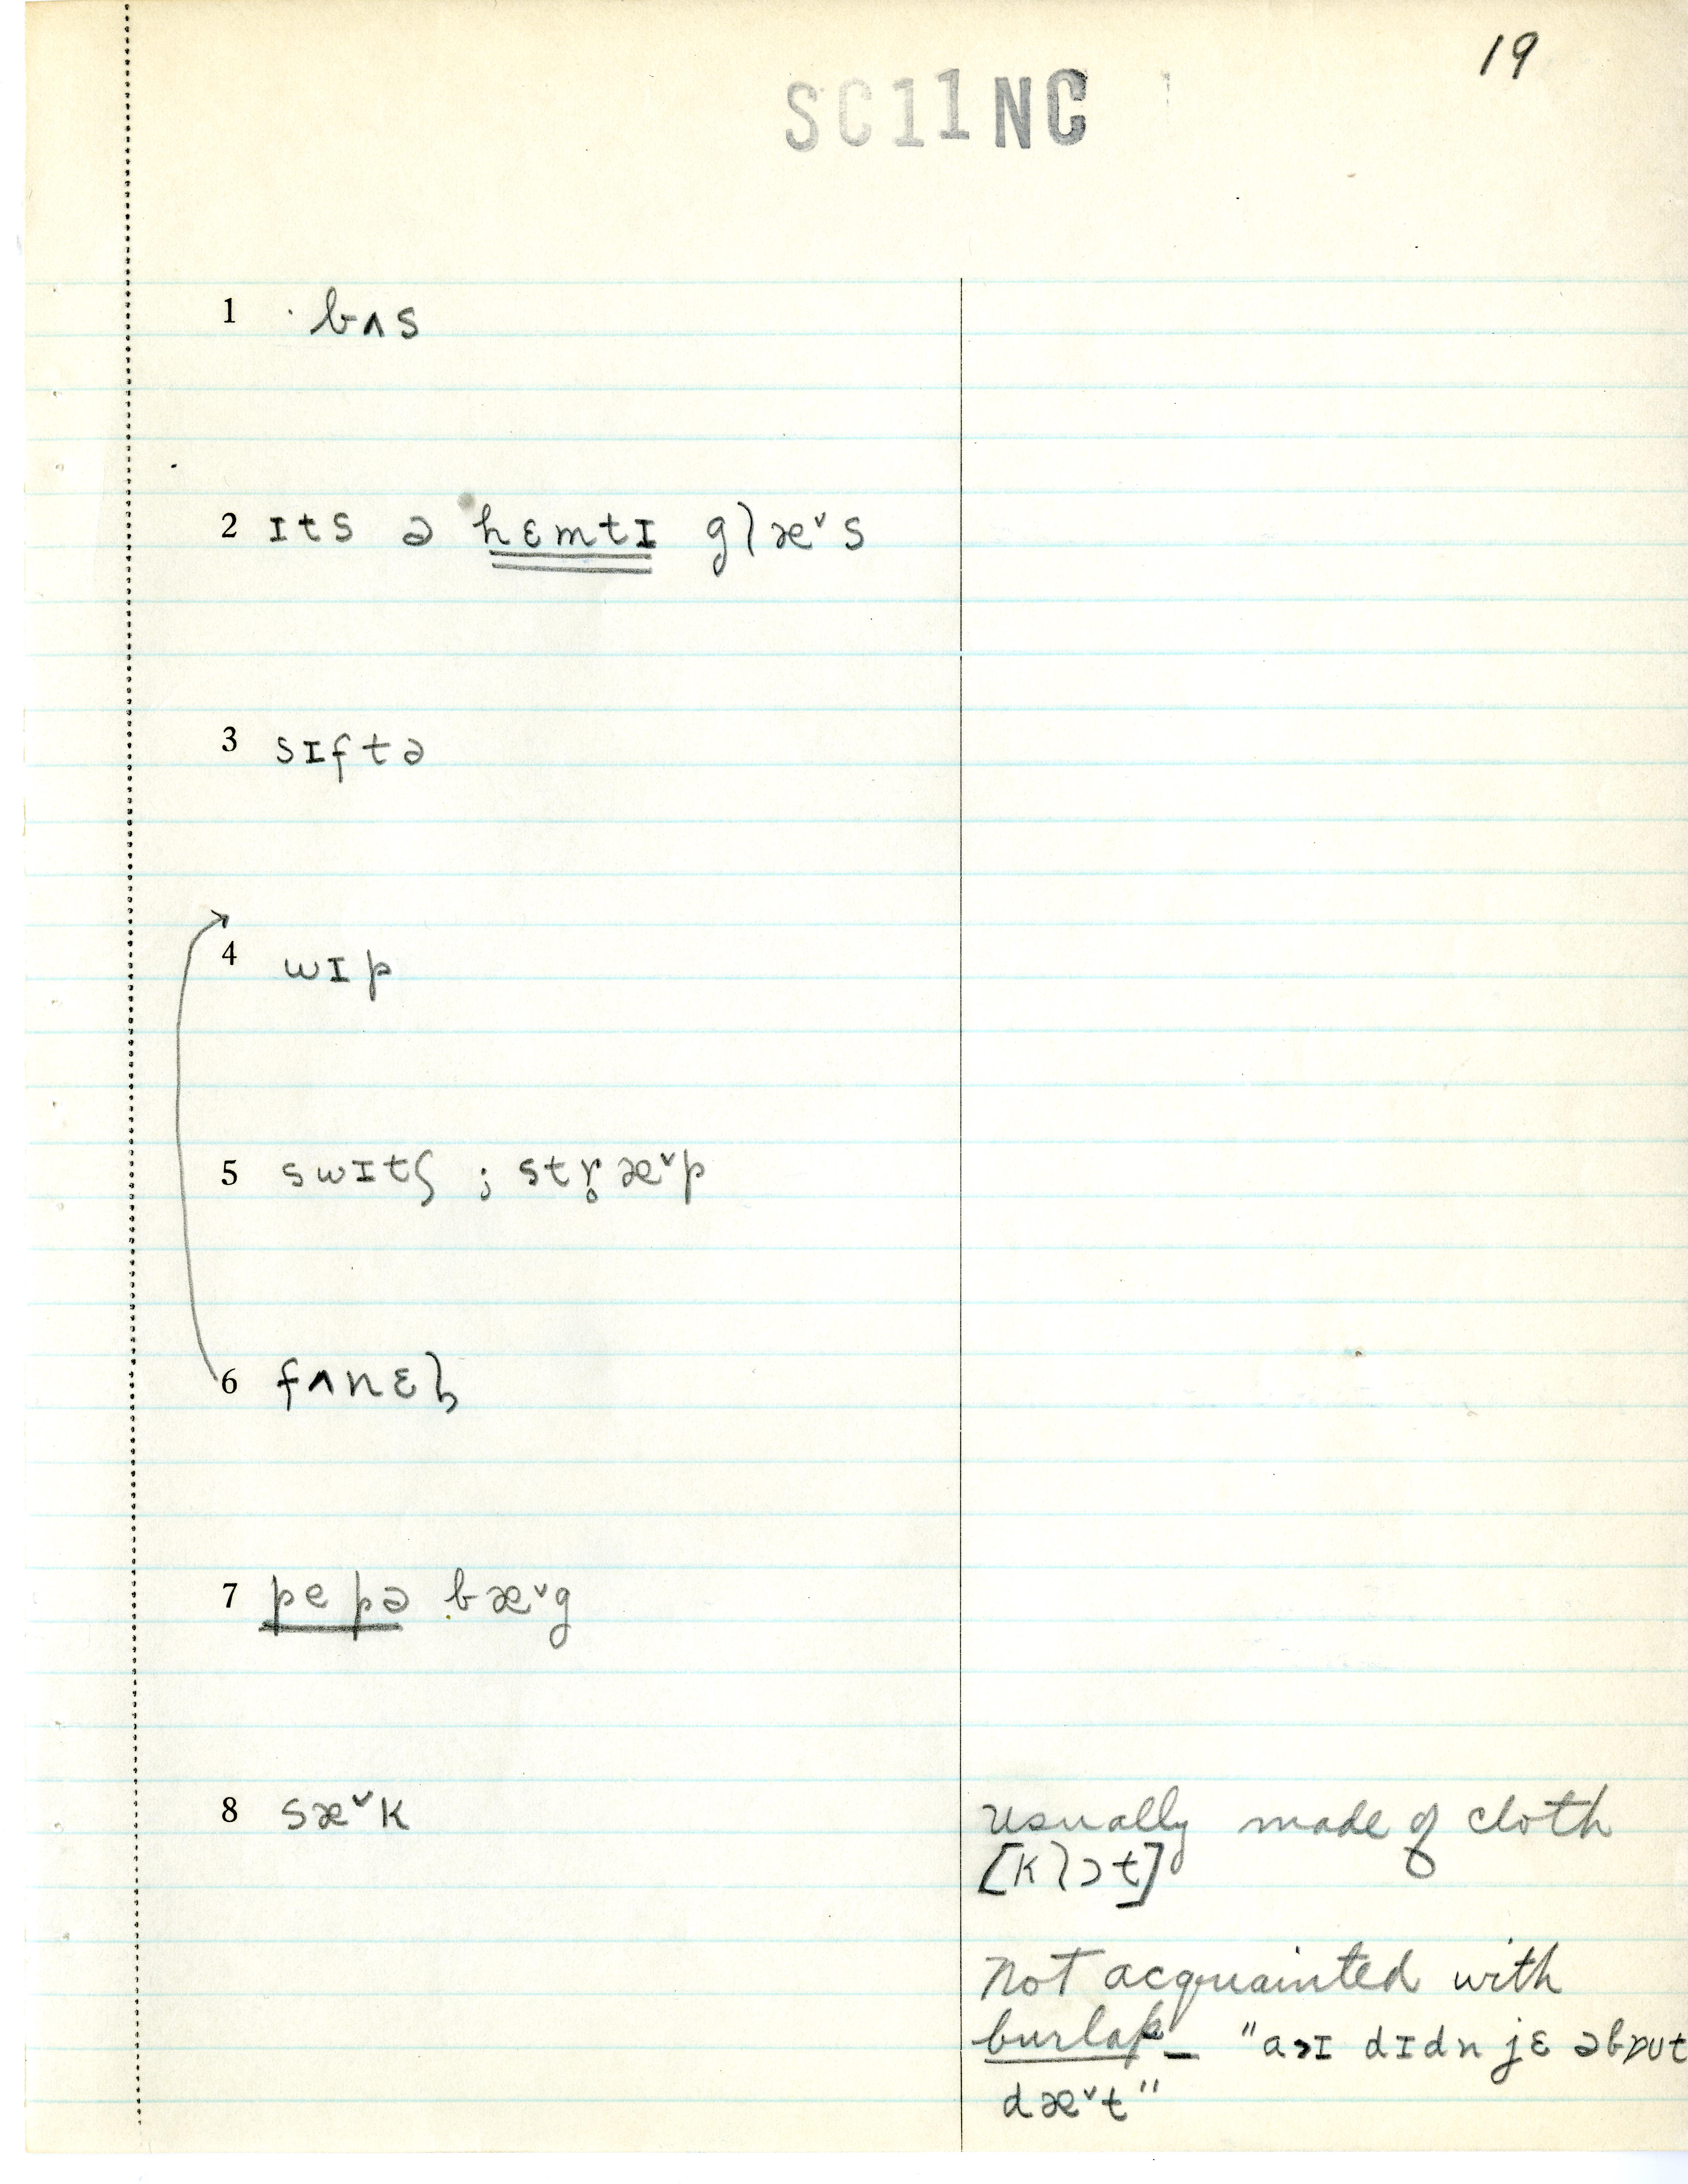 19
SC11NC
1 bʌs
2 ɪts ə hɛmtɪ glæ˅s
3 sɪftə
4 wɪp
5 swɪtʃ ; str̥æ˅p
6 fʌnɛɫ
7 pepə bæ˅g
8 sæ˅k
usually made of cloth
[klɔt]
not acquainted with
burlap – "a˃ɪ dɪdn jɛ əbɒʊt
dæ˅t"